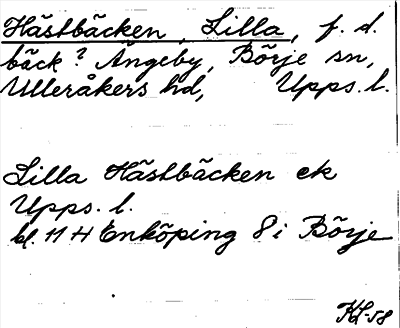 Hästbäcken, Lilla, f. d.
bäck? Ängeby, Börje sn,
Ulleråkers hd, Upps. l.
Lilla Hästbäcken ek
Upps. l.
bl. 11 H Enköping 8 i Börje
KL-58